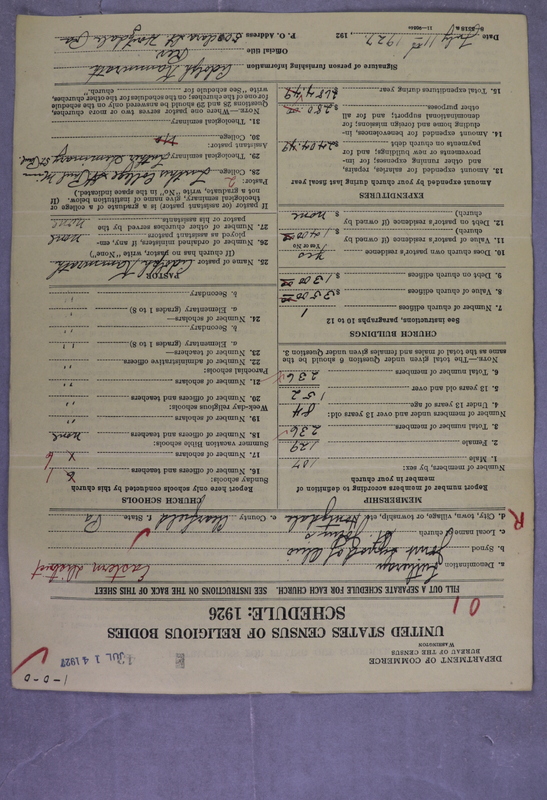 1-0-0
DEPARTMENT OF COMMERCE
BUREAU OF THE CENSUS
WASHINGTON
JUL 14 1927
UNITED STATES CENSUS OF RELIGIOUS BODIES
SCHEDULE: 1926
01
FILL OUT A SEPARATE SCHEDULE FOR EACH CHURCH. SEE INSTRUCTIONS ON THE BACK OF THIS SHEET
a. Denomination Lutheran Eastern District
b. Synod Joint Synod of Ohio
c. Local name of church St John's
d. City, town, village, or township, etc. Houtzdale e. County Clearfield f. State Pa
R
MEMBERSHIP
Report number of members according to definition of member in your church
Number of members, by sex:
1. Male 107
2. Female 129
3. Total number of members 236
Number of members under and over 13 years old:
4. Under 13 years of age 84
5. 13 years old and over 152
6. Total number of members 236
NOTE.—The total given under Question 6 should be the same as the total of males and females given under Question 3.
CHURCH BUILDINGS
See instructions, paragraphs 10 to 12
7. Number of church edifices 1
8. Value of church edifices $ 3500
9. Debt on church edifices $ 1300
10. Does church own pastor's residence yes
(Yes or No)
11. Value of pastor's residence (if owned by church) $
12. Debt on pastor's residence (if owned by church) $ none
EXPENDITURES
Amount expended by your church during last fiscal year
13. Amount expended for salaries, repairs, and other running expenses; for improvements or new buildings; and for payments on church debt $ 2404.49
14. Amount expended for benevolences, including home and foreign missions; for denominational support; and for all other purposes $ 280
15. Total expenditures during year $ 2684.49
CHURCH SCHOOLS
Report here only schools conducted by this church
Sunday schools:
16. Number of officers and teachers
17. Number of scholars
Summer vacation Bible schools:
18. Number of officers and teachers none
19. Number of scholars "
Week-day religious schools:
20. Number of officers and teachers "
21. Number of scholars "
Parochial schools:
22. Number of administrative officers "
23. Number of teachers—
a. Elementary (grades 1 to 8) "
b. Secondary "
24. Number of scholars—
a. Elementary (grades 1 to 8) "
b. Secondary "
PASTOR
25. Name of pastor Adolph Kammrath
(If church has no pastor, write "None")
26. Number of ordained ministers, if any, employed as assistant pastors none
27. Number of other churches served by the pastor or his assistants none
If pastor (or assistant pastor) is a graduate of a college or theological seminary, give name of institution below. (If not a graduate, write "No" in the space indicated.)
Pastor: 2
28. College Luther College St Paul Minn
29. Theological seminary Luther Seminary St Paul
Assistant pastor: No
30. College
31. Theological seminary
NOTE.—Where one pastor serves two or more churches, Questions 28 and 29 should be answered only on the schedule for one of the churches; on the schedules for the other churches, write "See schedule for ........ church."
Signature of person furnishing information Adolph Kammrath
Official title Rev.
P. O. Address Houtzdale Pa
Date July 11th 1927 192